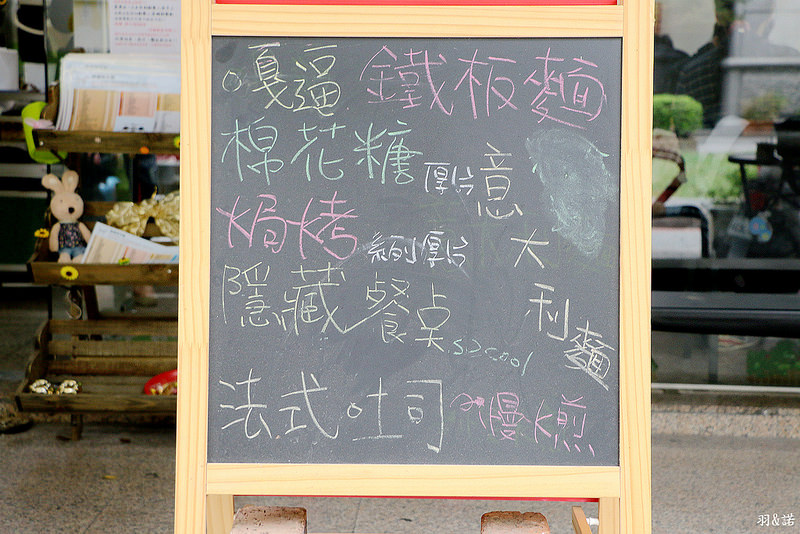 。嘎逼 鐵板麵
棉花糖 厚片
焗烤 系列厚片
隱藏餐点 so cool
法式吐司 慢煎
意大利麵
羽&諾